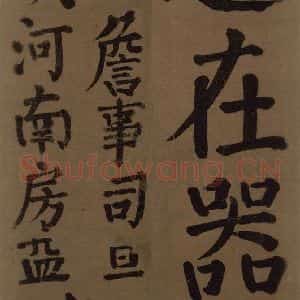 在器
詹事司
河南房
Shufawang.CN